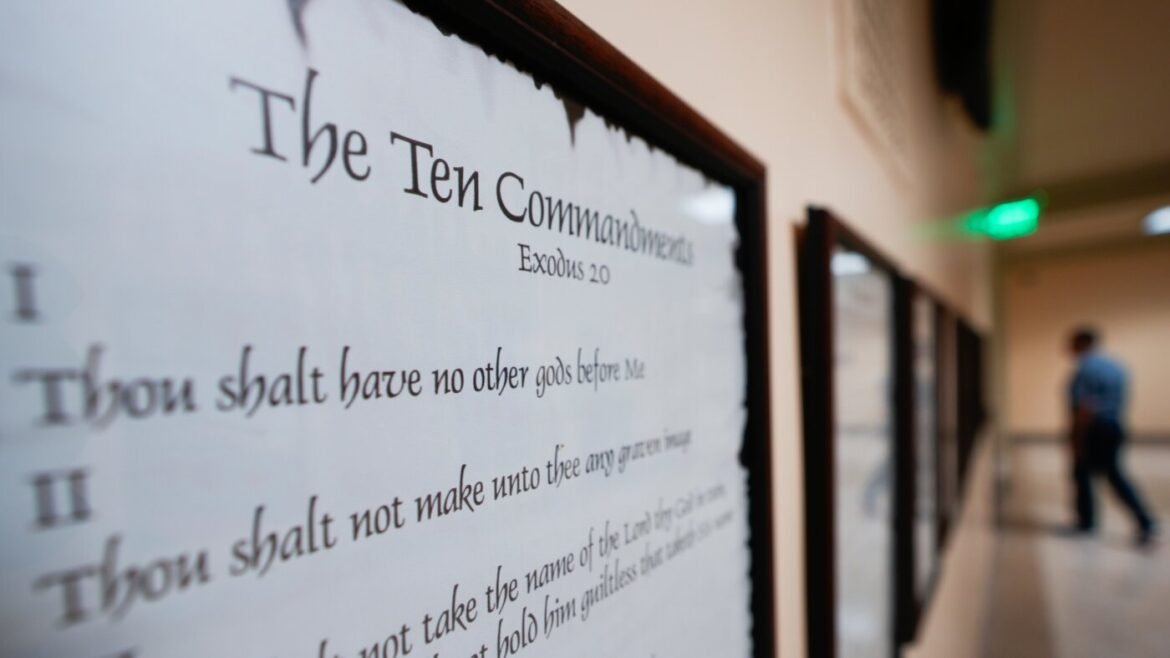 The Ten Commandments
Exodus 20
I
Thou shalt have no other gods before Me
II
Thou shalt not make unto thee any graven image
not take the name of the Lord thy God in vain,
not hold him guiltless that taketh His name